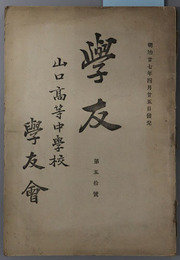 明治廿七年四月廿五日發兌
學友
第五拾號
山口高等中學校
學友會